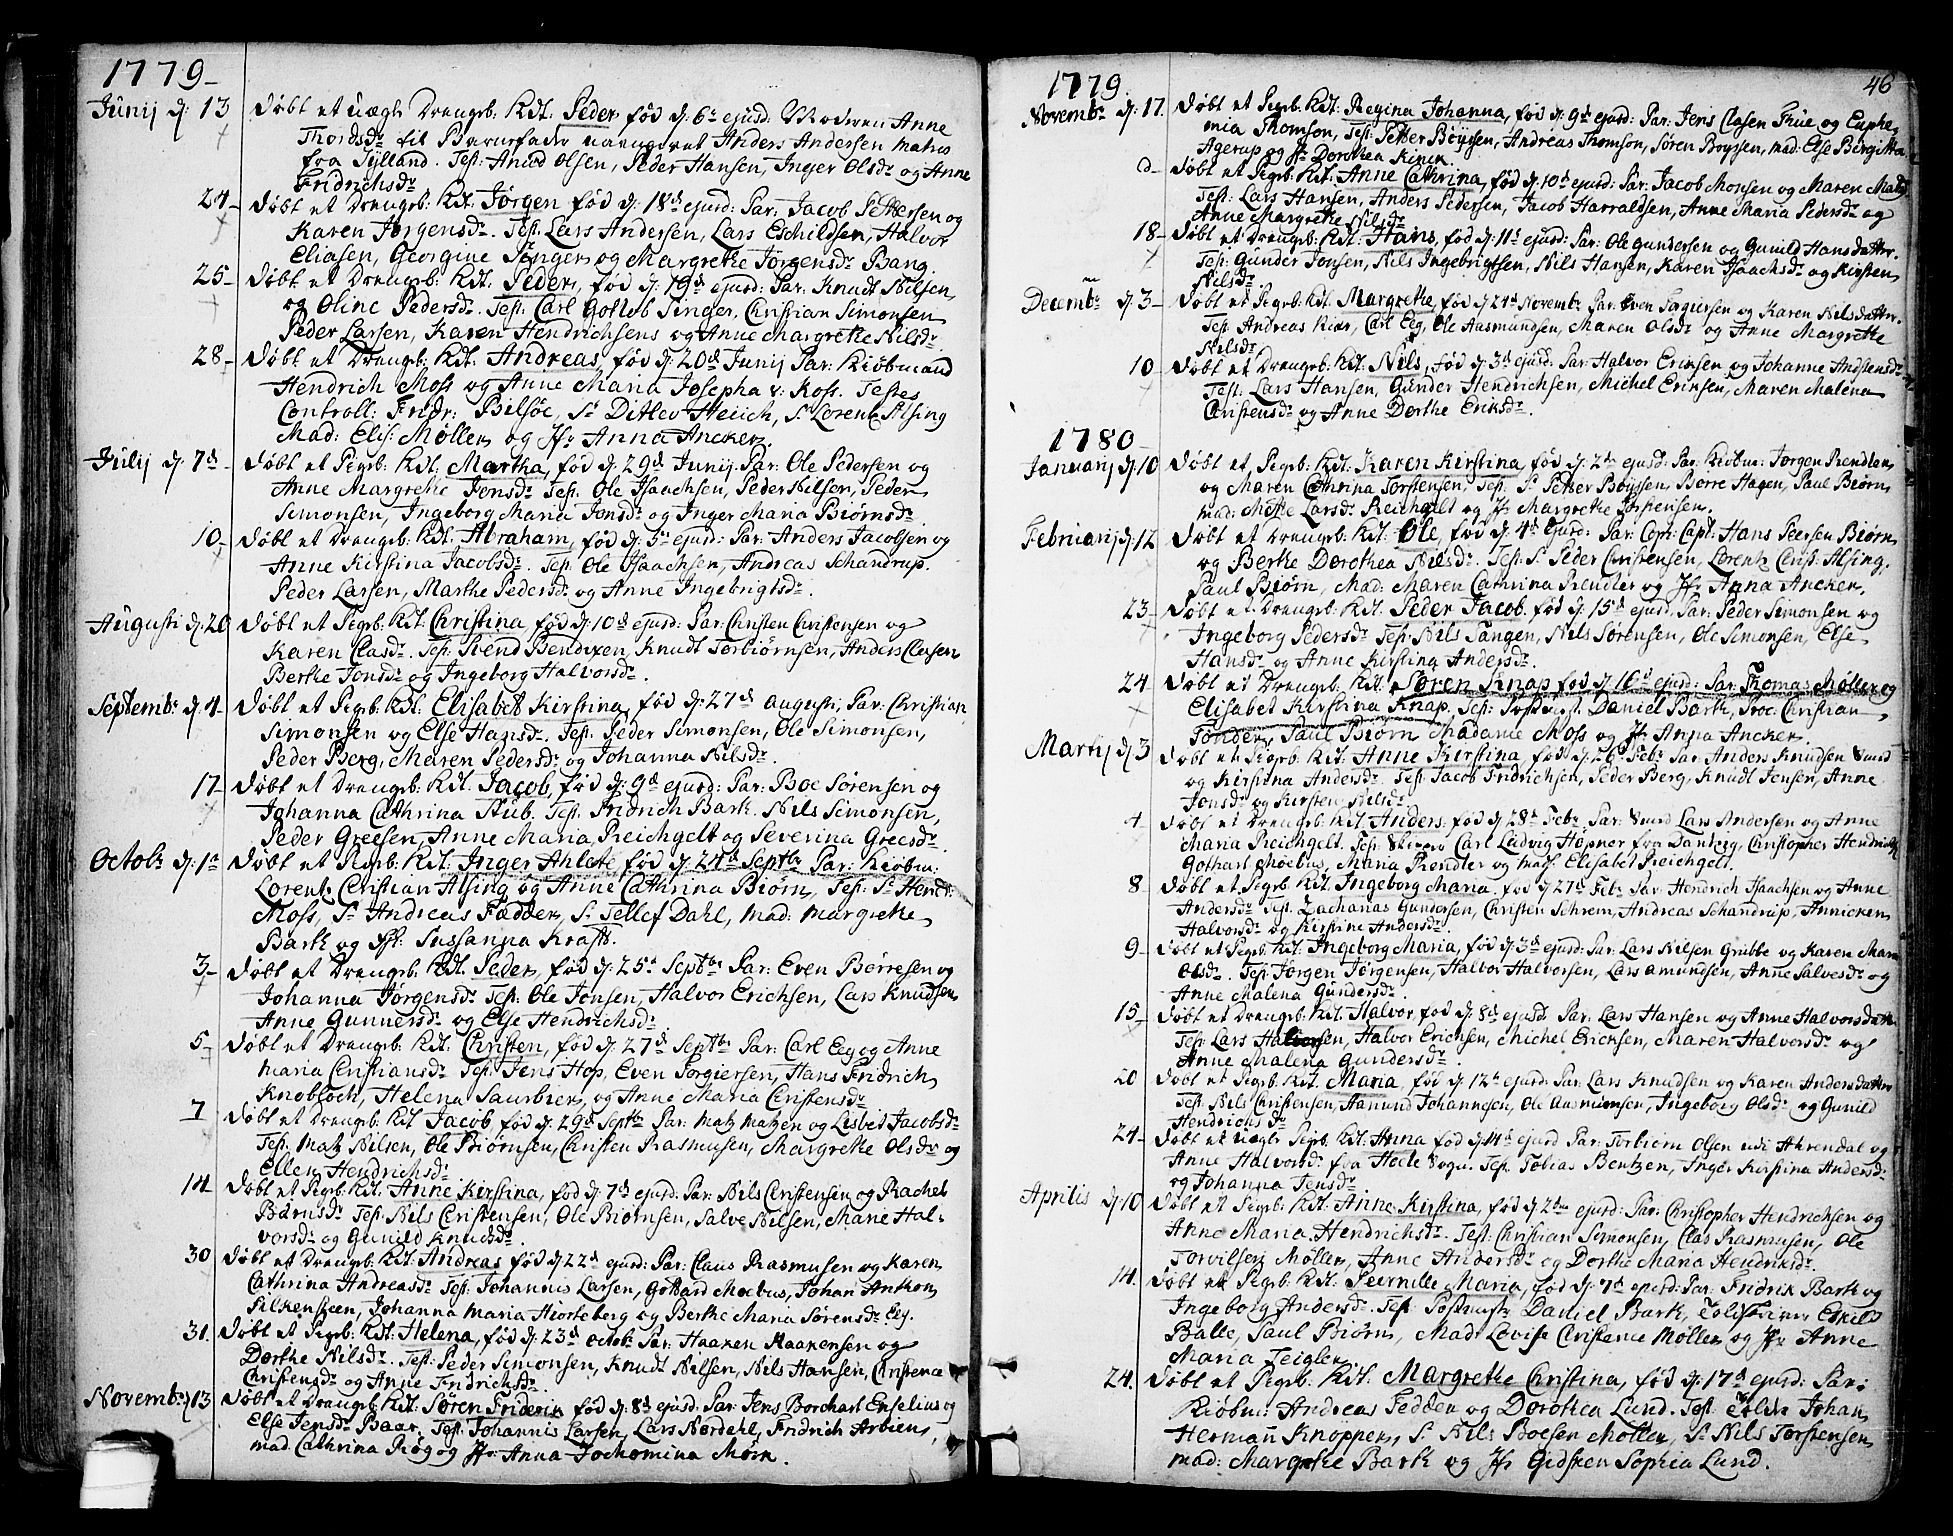 1779
Junij d. 13 Døbt et uægte Drengeb: Kdt. Peder fød d: 6te ejusd: Moderen Anne
Thordsdr til Barnefader udnævnet Anders Andersen matros
fra Jylland. Test: Anud Olsen, Peder Hansen, Inger Olsdr og Anne
Fridrichsdr
24 Døbt et Drengeb: Kdt. Jørgen fød d: 18de ejusd: Par: Jacob Pettersen og
Karen Jørgensdr. Test: Lars Andersen, Lars Eschildsen, Halvor
Eliasen, Georgine Singer og Margrethe Jørgensdr Bang.
25 Døbt et Drengeb: Kdt. Peder, fød d: 19de ejusd: Par: Knudt Nilsen
og Oline Pedersdr. Test: Carl Gottlob Singer, Christian Simonsen
Peder Larsen, Karen Hendrichsens og Anne Margrethe Nilsdr
28 Døbt et Drengeb: Kdt. Andreas, fød d: 20de Junij Par: Kiøbmand
Hendrich Moss og Anne Maria Josepha v: Koss. Testes
Controll: Fridr: Bilsøe, Sr Ditlev Heiich, Sr Lorentz Alsing
Mad: Elis: Møller og Jfr Anna Ancker.
Julij d. 7de Døbt et Pigeb: Kdt. Martha, fød d: 29de Junij. Par: Ole Pedersen og
Anne Margrethe Jensdr Test: Ole Isaachsen, Peder Nilsen, Peder
Simonsen, Ingeborg Maria Jonsdr og Inger Maria Biørnsdr
10 Døbt et Drengeb: Kdt. Abraham, fød d: 5te ejusd: Par: Anders Jacobsen og
Anne Kirstina Jacobsdr. Test: Ole Isaachsen, Andreas Schandrup.
Peder Larsen, Marthe Pedersdr og Anne Ingebrigtsdr.
Augusti d. 20 Døbt et Pigeb: Kdt. Christina fød d: 10de ejusd: Par: Christen Christensen og
Karen Clasdr. Test: Svend Bendixen, Knudt Torbiørnsen, Anders Clasen
Berthe Jonsdr og Ingeborg Halvorsdr.
Septembr d. 4. Døbt et Pigeb: Kdt. Elisabet Kirstina, fød d: 27de augusti, Par: Christian
Simonsen og Else Hansdr. Test: Peder Simonsen, Ole Simonsen,
Peder Berg, Maren Pedersdr og Johanna Nilsdr.
17 Døbt et Drengeb: Kdt. Jacob, fød d: 9de ejusd: Par: Boe Sørensen og
Johanna Cathrina Stub. Test: Fridrich Bark. Nils Simonsen,
Peder Greesen, Anne Maria Reichgelt og Severina Greesdr.
Octobr d. 1te Døbt et Pigeb: Kdt: Inger Ahlete, fød d: 24de Septbr Par: Kiøbm:
Lorentz Christian Alsing og Anne Cathrina Biørn, Test: Sr Hend:
Moss, Sr Andreas Fædder, Sr Tellef Dahl, Mad: Margrethe
Bark og Jfr: Sussanna Kraft.
3 Døbt et Drengeb: Kdt. Peder, fød d: 25de Septbr Par: Even Børresen og
Johanna Jørgensdr Test: Ole Jonsen, Halvor Erichsen, Lars Knudsen
Anne Gunnersdr og Else Hendrichsdr
5 Døbt et Drengeb: Kdt. Christen, fød d: 27de Septbr Par: Carl Eeg og Anne
Maria Christiansdr Test: Jens Hop, Even Torgiersen, Hans Fridrich
Knobloch, Helena Saurbier, og Anne Maria Christensdr
7 Døbt et Drengeb: Kdt Jacob fød d: 29de Septbr Par: Matz Matzen og Lisbet Jacobsdr
Test: Matz Nilsen, Ole Biørnsen, Christen Rasmusen, Margrethe Olsdr og
Ellen Hendrichsdr
14 Døbt et Pigeb: Kdt: Anne Kirstina, fød d: 7de ejusd: Par: Nils Christensen og Rachel
Børnsdr Test: Nils Christensen, Ole Biørnsen, Salve Nilsen, Marie Hal-
vorsdr og Gunild Knudsdr.
30 Døbt et Drengeb: Kdt: Andreas fød d: 22de ejusd: Par: Claus Rasmusen og Karen
Cathrina Andreasdr Test: Johannis Larsen, Gottard Moebus, Johan Anthon
Silkensteen, Johanna Maria Hiorteberg og Berthe Maria Sørensdr Eeg.
31. Døbt et Pigeb: Kdt: Helena, fød d: 23de Octobr Par: Haaken Haakensen og
Dorthe Nilsdr. Test: Peder Simonsen, Knudt Nilsen, Nils Hansen, Christence
Christensdr og Anne Fridrichsdr
Novembr d. 13 Døbt et Drengeb: Kdt: Søren Friderich fød d: 8de ejusd: Par: Jens Borchart Enselius og
Else Jensdr Baar, Test: Johannis Larsen, Lars Nørdahl, Fridrich Arbien,
mad. Cathrina Røg og Jfr Anna Jochomina Mørn.
1779. 46
Novembr d. 17. Døbt et Pigeb: Kdt: Regina Johanna, fød d: 9de ejusd: Par: Jens Clasen Thue og Euphe-
mia Thomson, Test: Petter Bøyssen, Andreas Thomson, Søren Boyssen, mad: Else Birgitta
Agerup og Jfr Dorothea Kinck.
d Døbt et Pigeb: Kdt: Anne Cathrina, fød d: 10de ejusd: Par: Jacob Monsen og Maren Madsdr
Test: Lars Hansen, Anders Pedersen, Jacob Harraldsen, Anne Maria Pedersdr og
Anne Margrethe Nilsdr
18 Døbt et Drengeb: Kdt: Hans, fød d: 11de ejusd: Par: Ole Gundersen og Gunild Hansdatter.
Test: Gunder Jonsen, Nils Ingebrigtsen, Nils Hansen, Karen Isaachsdr og Kirsten
Nilsdr
Decembr d. 3 Døbt et Pigeb: Kdt: Margrethe, fød d 24de Novembr Par: Even Torgiersen og Karen Nilsdatter.
Test: Andreas Kier, Carl Eeg, Ole Aasmundsen, Maren Olsdr og Anne Margrethe
Nilsdr
10 Døbt et Drengeb: Kdt: Nils, fød d: 3de ejusd: Par: Halvor Erichsen og Johanne Andstensdr
Test: Lars Hansen, Gunder Hendrichsen, Michel Erichsen, Maren Malena
Christensdr og Anne Dorthe Eriksdr.
1780
Januarij d. 10 Døbt et Pigeb: Kdt. Karen Kirstina, fød d: 2den ejusd: Par: Kiøbm: Jørgen Rendler
og Maren Cathrina Torstensen, Test: Sr Petter Boyssen, Børre Hagen, Paul Biørn,
mad: Mette Larsdr Reichgelt og Jfr Margrethe Torstensen.
Februarij d. 12 Døbt et Drengeb: Kdt: Ole, fød d: 4de Ejusd: Par: Cop: Capt: Hans Peersen Biørn
og Berthe Dorothea Nilsdr. Test: Sr Peder Christensen, Lorentz Christ: Alsing,
Paul Biørn, Mad: Maren Cathrina Rendler og Jfr Anna Ancker.
23 Døbt et Drengeb: Kdt: Peder Jacob, fød d: 15de ejusd: Par: Peder Simonsen og
Ingeborg Pedersdr Test: Nils Tangen, Nils Sørensen, Ole Simonsen, Else
Hansdr og Anne Kirstina Andersdr.
24 Døbt et Drengeb: Kdt: Søren Knap fød d: 16de ejusd: Par: Thomas Møller og
Elisabet Kirstina Knap. Test: Postmest: Daniel Bark, Proc: Christian
Tønder, Paul Biørn, Madame Moss og Jfr Anna Ancker
Martij d. 3 Døbt et Pigeb: Kdt: Anne Kirstina, fød d: 26de Febr Par: Anders Knudsen Smed
og Kirstina Andersdr Test: Jacob Fridrichsen, Peder Berg, Knudt Jensen, Anne
Jonsdr og Kirsten Nilsdr
4 Døbt et Drengeb: Kdt: Anders. fød d: 28de Febr Par: Smed Lars Andersen og Anne
Maria Reichgelt. Test: Skipper Carl Ludvig Höpner fra Dantzig, Christopher Hendrichs:
Gothart Moebus, Maria Rendler og Mad: Elisabet Reichgelt.
8 Døbt et Pigeb: Kdt: Ingeborg Maria. fød d 27de Febr Par: Hendrich Isaachsen og Anne
Andersdr Test: Zacharias Gundersen, Christen Schrem, Andreas Schandrup, Annicken
Halvorsdr og Kirstine Andersdr.
9 Døbt et Pigeb: Kdt: Ingeborg Maria, fød d: 3de ejusd: Par: Lars Nilsen Grubbe og Karen Maria
Olsdr. Test: Jørgen Jørgensen, Halvor Halvorsen, Lars Amundsen, Anne Salvesdr og
Anne Malena Gundersdr.
15 Døbt et Drengeb: Kdt: Halvor, fød d: 8de ejusd: Par: Lars Hansen og Anne Halvorsdatter
Test: Lars Halvorsen, Halvor Erichsen, Michel Erichsen, Maren Halvorsdr og
Anne Malena Gundersdr
20 Døbt et Pigeb: Kdt: Maria, fød d: 12te ejusd: Par: Lars Knudsen og Karen Andersdatter
Test: Nils Christensen, Aamund Johannesen, Ole Aasmunsen, Ingeborg Olsdr og Gunild
Hendrichsdr
24 Døbt et uægte Pigeb: Kdt: Anna fød d: 14de ejusd Par: Torbiørn Olsen udi Ahrendal og
Anne Halvorsdr fra Holte Sogn. Test: Tobias Bentzen, Inger Kirstina Andersdr
og Johanna Jensdr
Aprilis d. 10 Døbt et Pigeb: Kdt: Anne Kirstina, fød d: 2den ejusd: Par: Christopher Hendrichsen og
Anne Maria Hendrichsdr. Test: Christian Simonsen, Clas Rasmusen, Ole
Torvilsen Møller, Anne Andersdr og Dorthe Maria Hendriksdr.
14. Døbt et Pigeb: Kdt: Peernille Maria, fød d: 7de ejusd: Par: Fridrik Bark og
Ingeborg Andersdr. Test: Postmestr Daniel Bark, Eskild
Balle, Paul Biørn, Mad: Lovise Christence Møller og Jfr Anne
Maria Zeigler
24. Døbt et Pigeb: Kdt: Margrethe Christina, fød d: 17de ejusd: Par:
Kiøbm: Andreas Fedder og Dorothea Lund. Test: Tolder Johan
Hermann Knopper, Sr Nils Boesen Møller, Sr Nils Torstensen
mad: Margrethe Bark og Jfr Gidsken Sophia Lund.